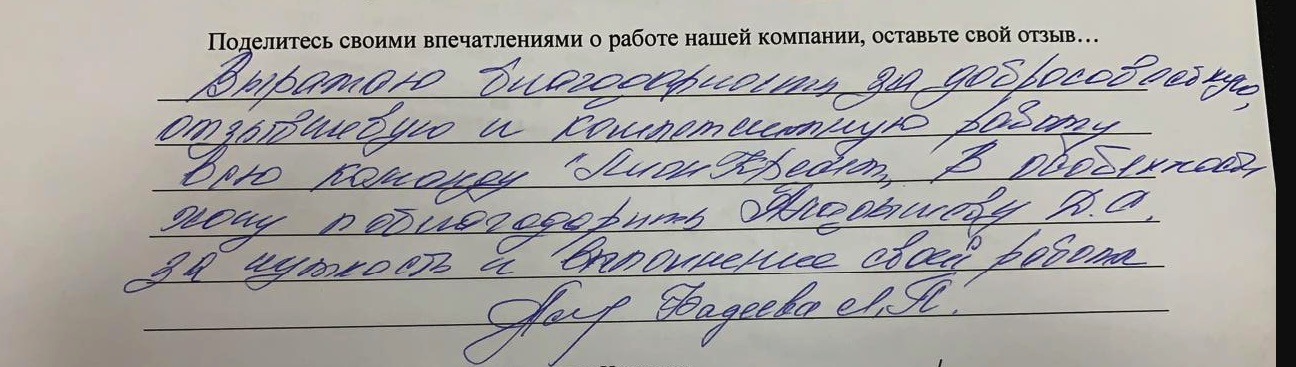 Поделитесь своими впечатлениями о работе нашей компании, оставьте свой отзыв…
Выражаю благодарность за добросовестную,
отзывчивую и компетентную работу
Всю команду "Лион Кредит, В особенности
хочу поблагодарить Д.А.
за чуткость и выполнение своей работы
Фадеева Л.П.